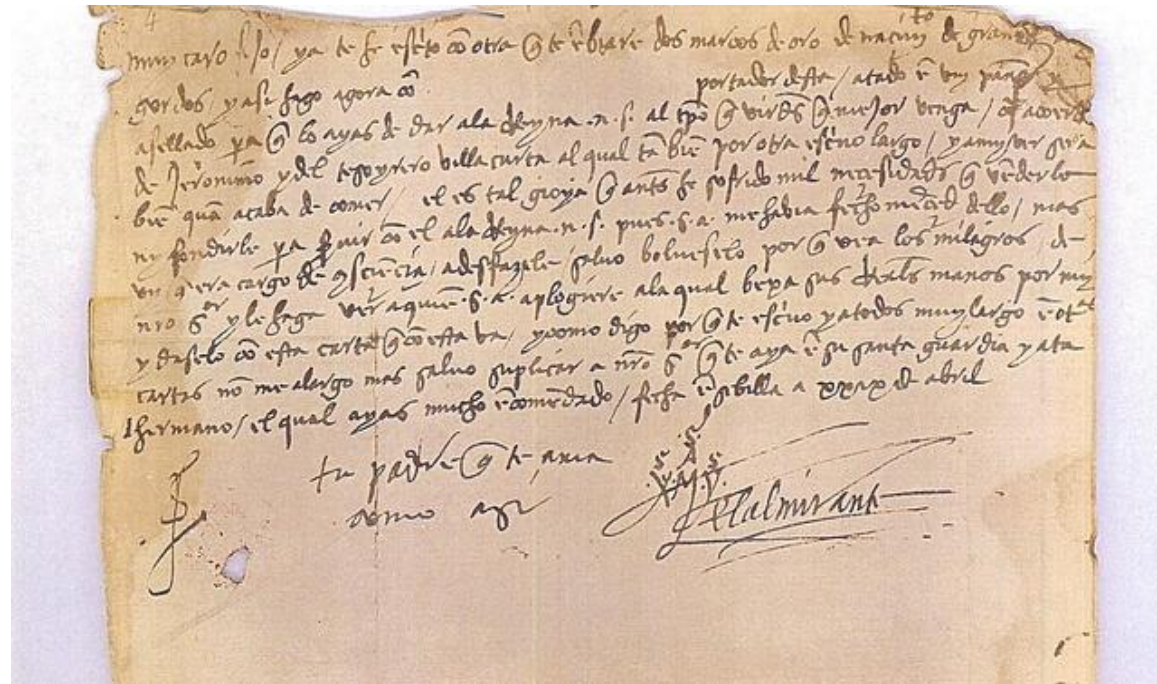 muy caro fijo / ya te he escrito cõ otra q̃ te ẽbiare dos marcos de oro de naçimiº de granos
gordos / y asi hago agora cõ portador desta / atado ẽ vn paño y
asellado pa q̃ lo ayas de dar ala Reyna .n.s. al tpõ q̃ virdes q̃ mejor venga /
de Jeronimo y del tesoyrero villacurta al qual tãbiẽ por otra escrivo largo / y a my ver sera
biẽ quã acaba de comer / el es tal gioya q̃ antes he sofrido mil necesidads q̃ vẽderlo
ny fondirle pa q̃ cõ el ala Reyna .n.s. pues .s.a. me habia fecho merçed dello / mas
cargo de cõsçiẽçia / a desfazele salvo bolverselo por q̃ vea los milagros de
nro sor y le haga ver a quiẽ .s.a. aplogiere ala qual bexa sus Reals manos por my
y daselo cõ esta carta q̃ cõ esta va / y como digo por q̃ te escrivo y atodos muy largo ẽ otras
cartas nõ me alargo mas salvo suplicar a nrõ sor q̃ te aya ẽ su santa guardia y ata
hermano / el qual ayas mucho ẽcomẽdado / fecha ẽ sebilla a xxix de abril
tu padre q̃ te ama
como asi
.s.
.s. A .s.
X M Y
el almirante